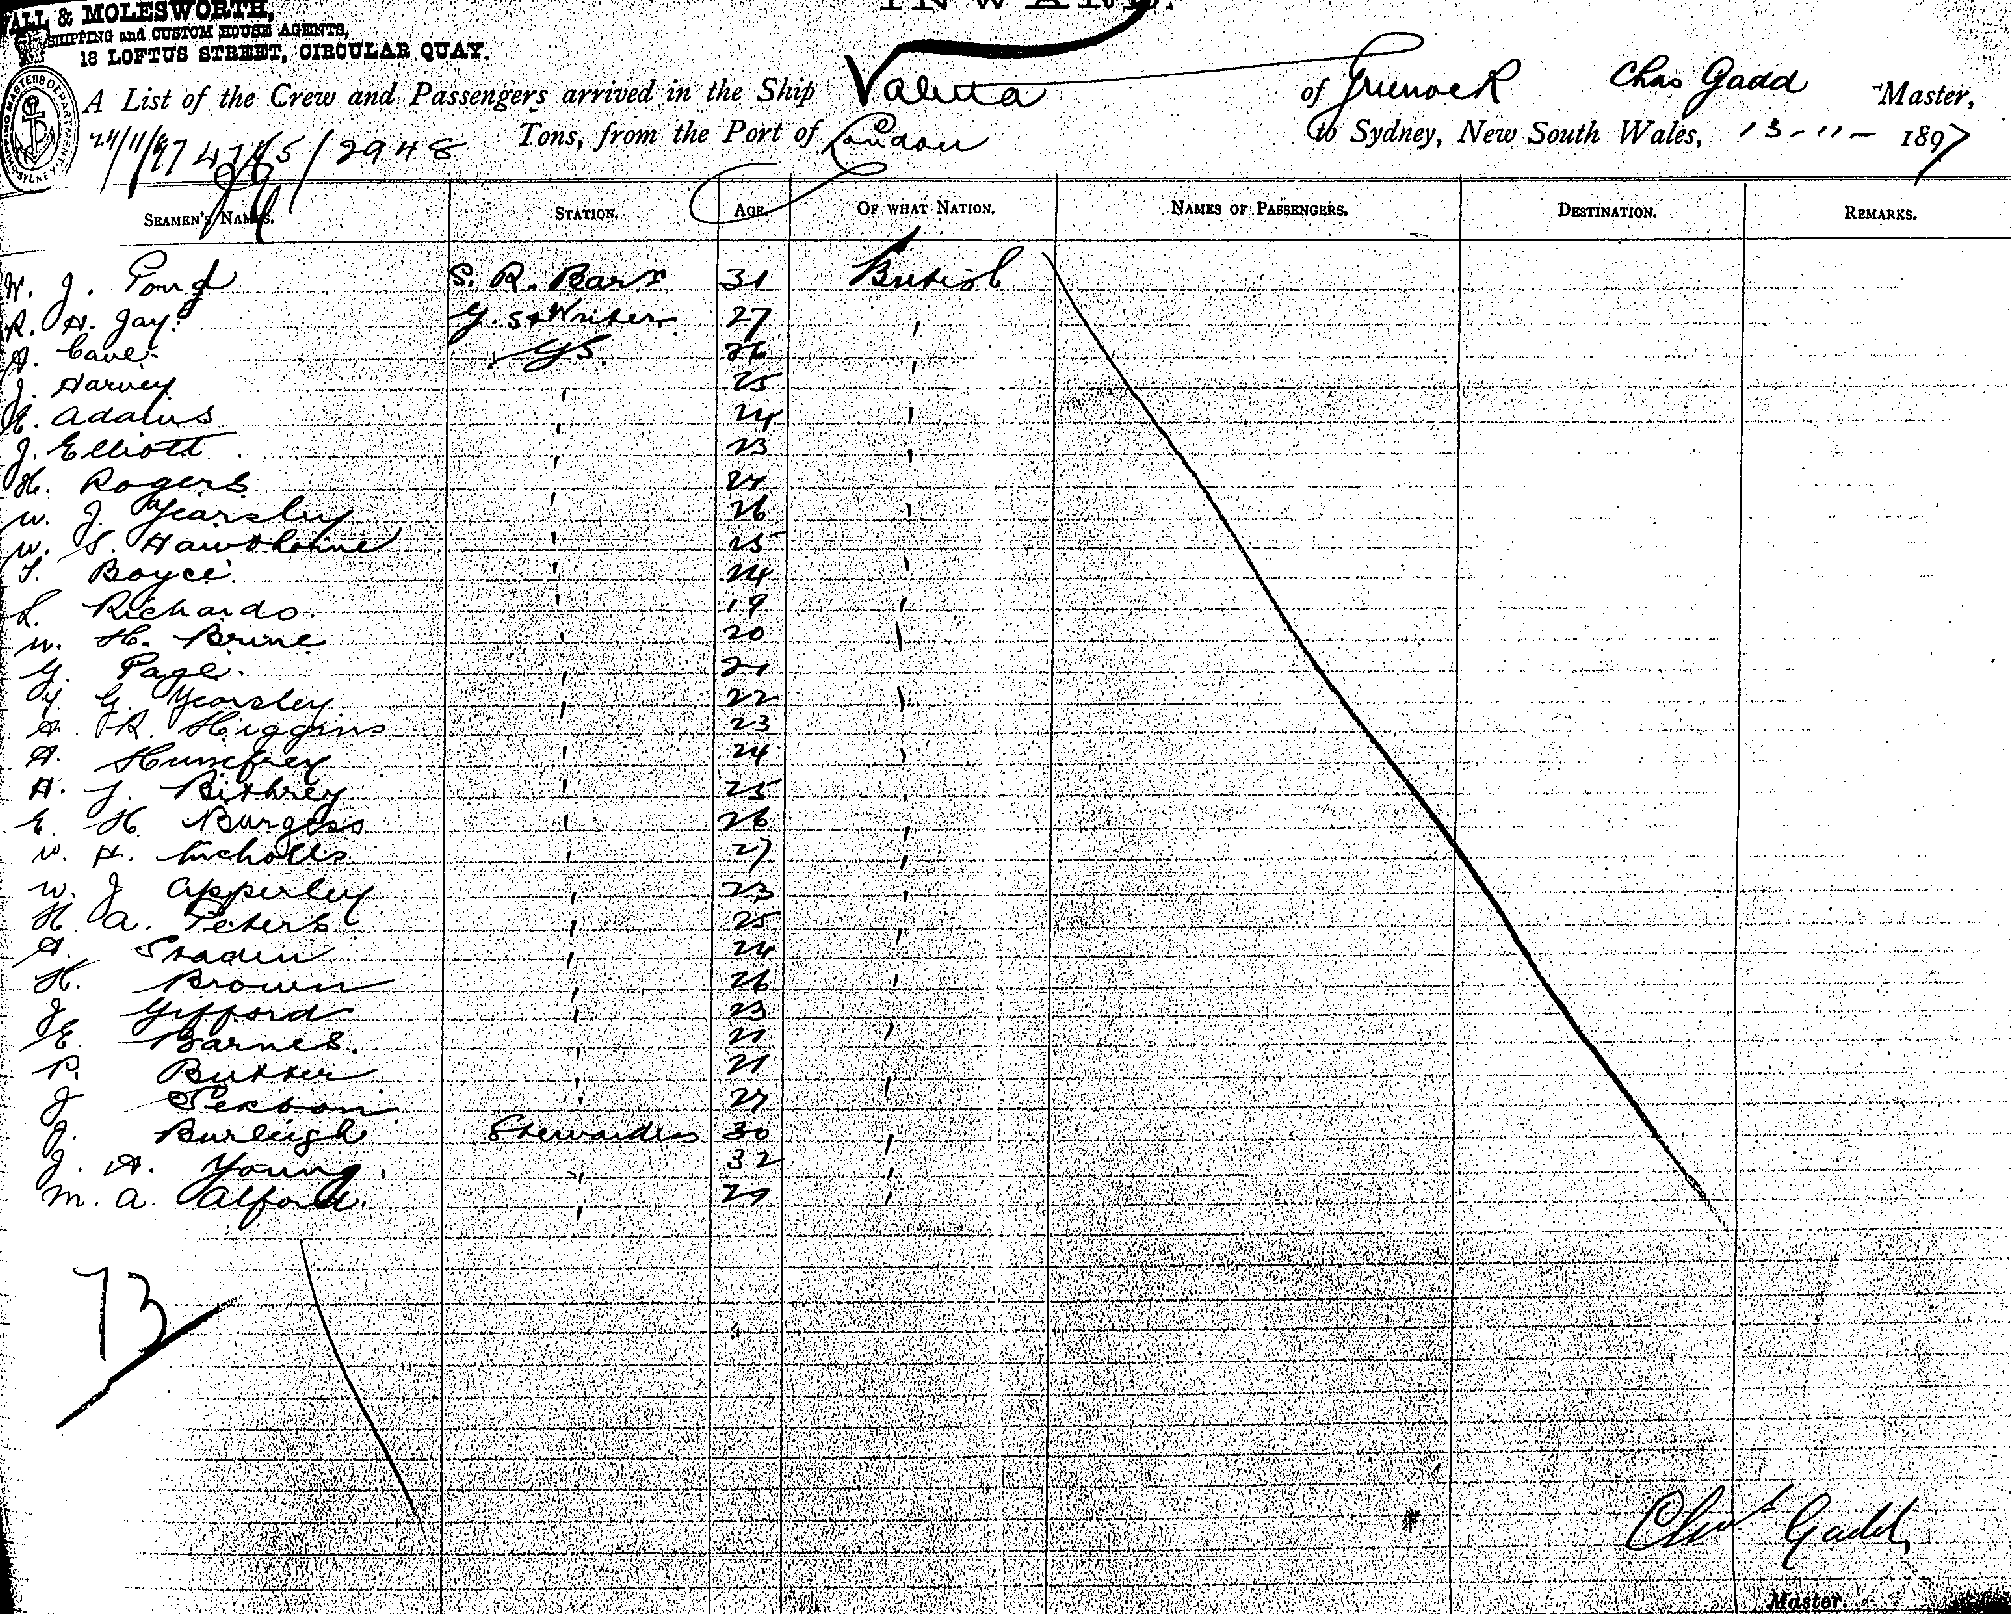 INWARD.
WALL & MOLESWORTH,
SHIPPING and CUSTOM HOUSE AGENTS,
18 LOFTUS STREET, CIRCULAR QUAY.
A List of the Crew and Passengers arrived in the Ship Valetta of Greenock Chas Gadd Master,
24/11/97 / 2948 Tons, from the Port of London to Sydney, New South Wales, 13-11-1897
SEAMEN'S NAMES. STATION. AGE OF WHAT NATION. NAMES OF PASSENGERS. DESTINATION. REMARKS.
W. J. S. R. Bar 31 British
R. H. Jay. G. S. & Writer 27 "
A. Cave G S. 26 "
J. Harvey " 25 "
H. Adams " 24 "
J. Elliott " 23 "
H. Rogers "
W. J. Yearsley " 26 "
W. S. Hawthorne " 25
T. Boyce " 24 "
L. Richards " 19 "
W. H. Brine " 20 "
G. Page " 21
G. Yearsley " 22 "
A. R. Higgins 23
A. Humfrey " 24 "
A. J. Bithrey " 25 "
E. H. Burgess " 26 "
W. H. Nicholls " 27 "
W. J. Apperley " 23 "
H. A. Peters " 25 "
A. Sradin " 24
H. Brown " 26 "
J. Gifford " 23
E. Barnes. " 21 "
P. Butter " 21
J " 27 "
J. Burleigh Stewardess 30 "
J. A. Young " 32 "
M. A. Alford. " 29 "
73
Chas Gadd
Master